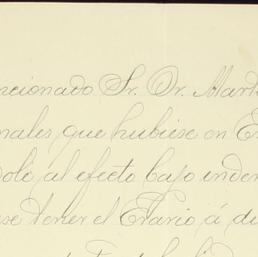 ncionado Sr. Dr. Mart
nales, que hubiese en E
dolo al efecto bajo inden
se tener el Erario á di